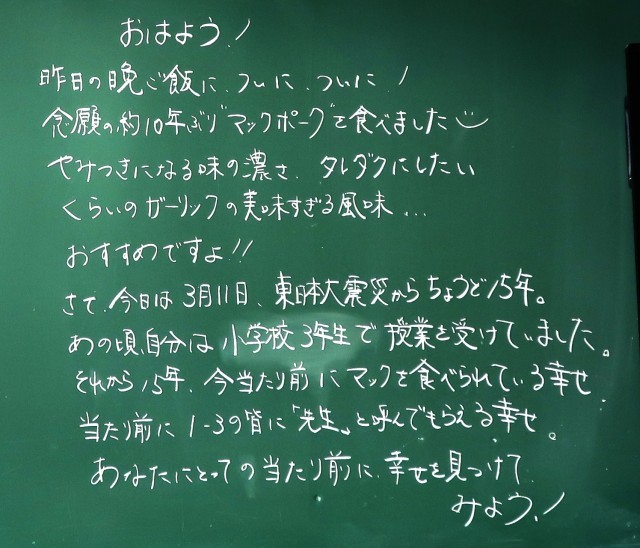 おはよう！
昨日の晩ご飯に、ついに、ついに！
念願の約10年ぶり"マックポーク"を食べました
やみつきになる味の濃さ、タレダクにしたい
くらいのガーリックの美味すぎる風味…
おすすめですよ！！
さて、今日は3月11日、東日本大震災からちょうど15年。
あの頃、自分は小学校3年生で授業を受けていました。
それから15年、今当たり前にマックを食べられている幸せ
当たり前に1-3の皆に「先生」と呼んでもらえる幸せ。
あなたにとっての当たり前に、幸せを見つけて
みよう！